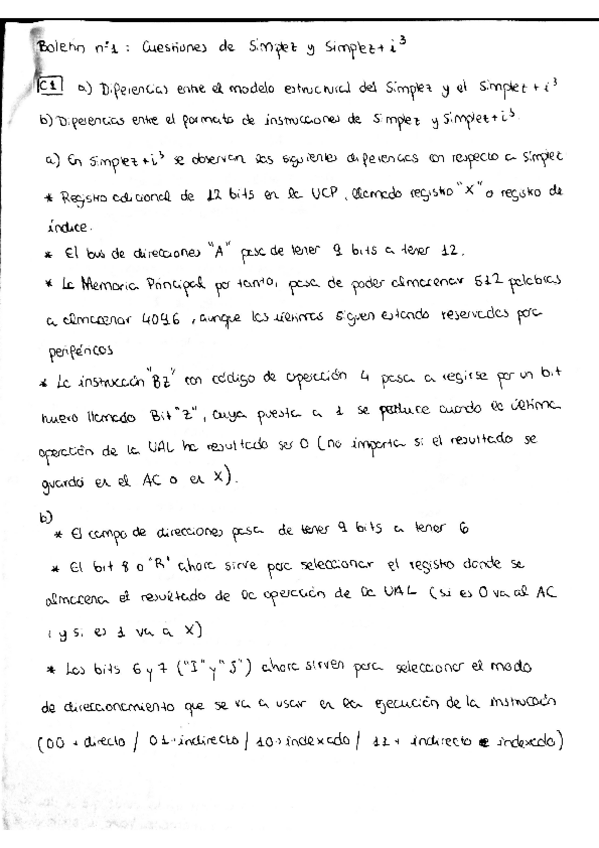 Boletín nº1: Cuestiones de Simplez y Simplez+i³
C1 a) Diferencias entre el modelo estructural del Simplez y el Simplez+i³
b) Diferencias entre el formato de instrucciones de Simplez y Simplez+i³.
a) En Simplez+i³ se observan las siguientes diferencias con respecto a Simplez
* Registro adicional de 12 bits en la UCP, llamado registro "X" o registro de
índice.
* El bus de direcciones "A" pasa de tener 9 bits a tener 12.
* La Memoria Principal por tanto, pasa de poder almacenar 512 palabras
a almacenar 4096, aunque las últimas siguen estando reservadas para
periféricos
* La instrucción "BZ" con código de operación 4 pasa a regirse por un bit
nuevo llamado Bit "Z", cuya puesta a 1 se produce cuando la última
operación de la UAL ha resultado ser 0 (no importa si el resultado se
guarda en el AC o en X).
b)
* El campo de direcciones pasa de tener 9 bits a tener 6
* El bit 8 o "R" ahora sirve para seleccionar el registro donde se
almacena el resultado de la operación de la UAL (si es 0 va al AC
y si es 1 va a X)
* Los bits 6 y 7 ("I" y "J") ahora sirven para seleccionar el modo
de direccionamiento que se va a usar en la ejecución de la instrucción
(00→directo / 01→indirecto / 10→indexado / 11→ indirecto e indexado)